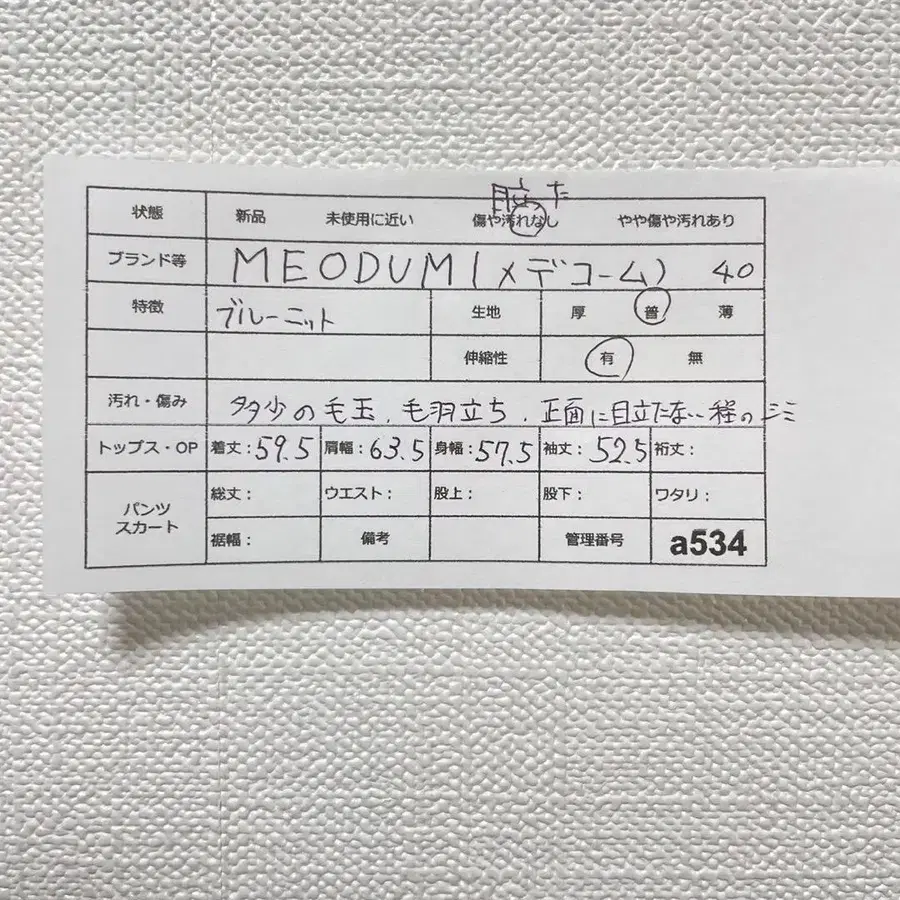 目立た
状態 新品 未使用に近い 傷や汚れなし やや傷や汚れあり
ブランド等 MEODUM(メデコーム) 40
特徴 ブルーニット 生地 厚 普 薄
伸縮性 有 無
汚れ・傷み 多少の毛玉、毛羽立ち、正面に目立たない程のシミ
トップス・OP 着丈:59.5 肩幅:63.5 身幅:57.5 袖丈:52.5 裄丈:
パンツ スカート 総丈: ウエスト: 股上: 股下: ワタリ:
裾幅: 備考 管理番号 a534